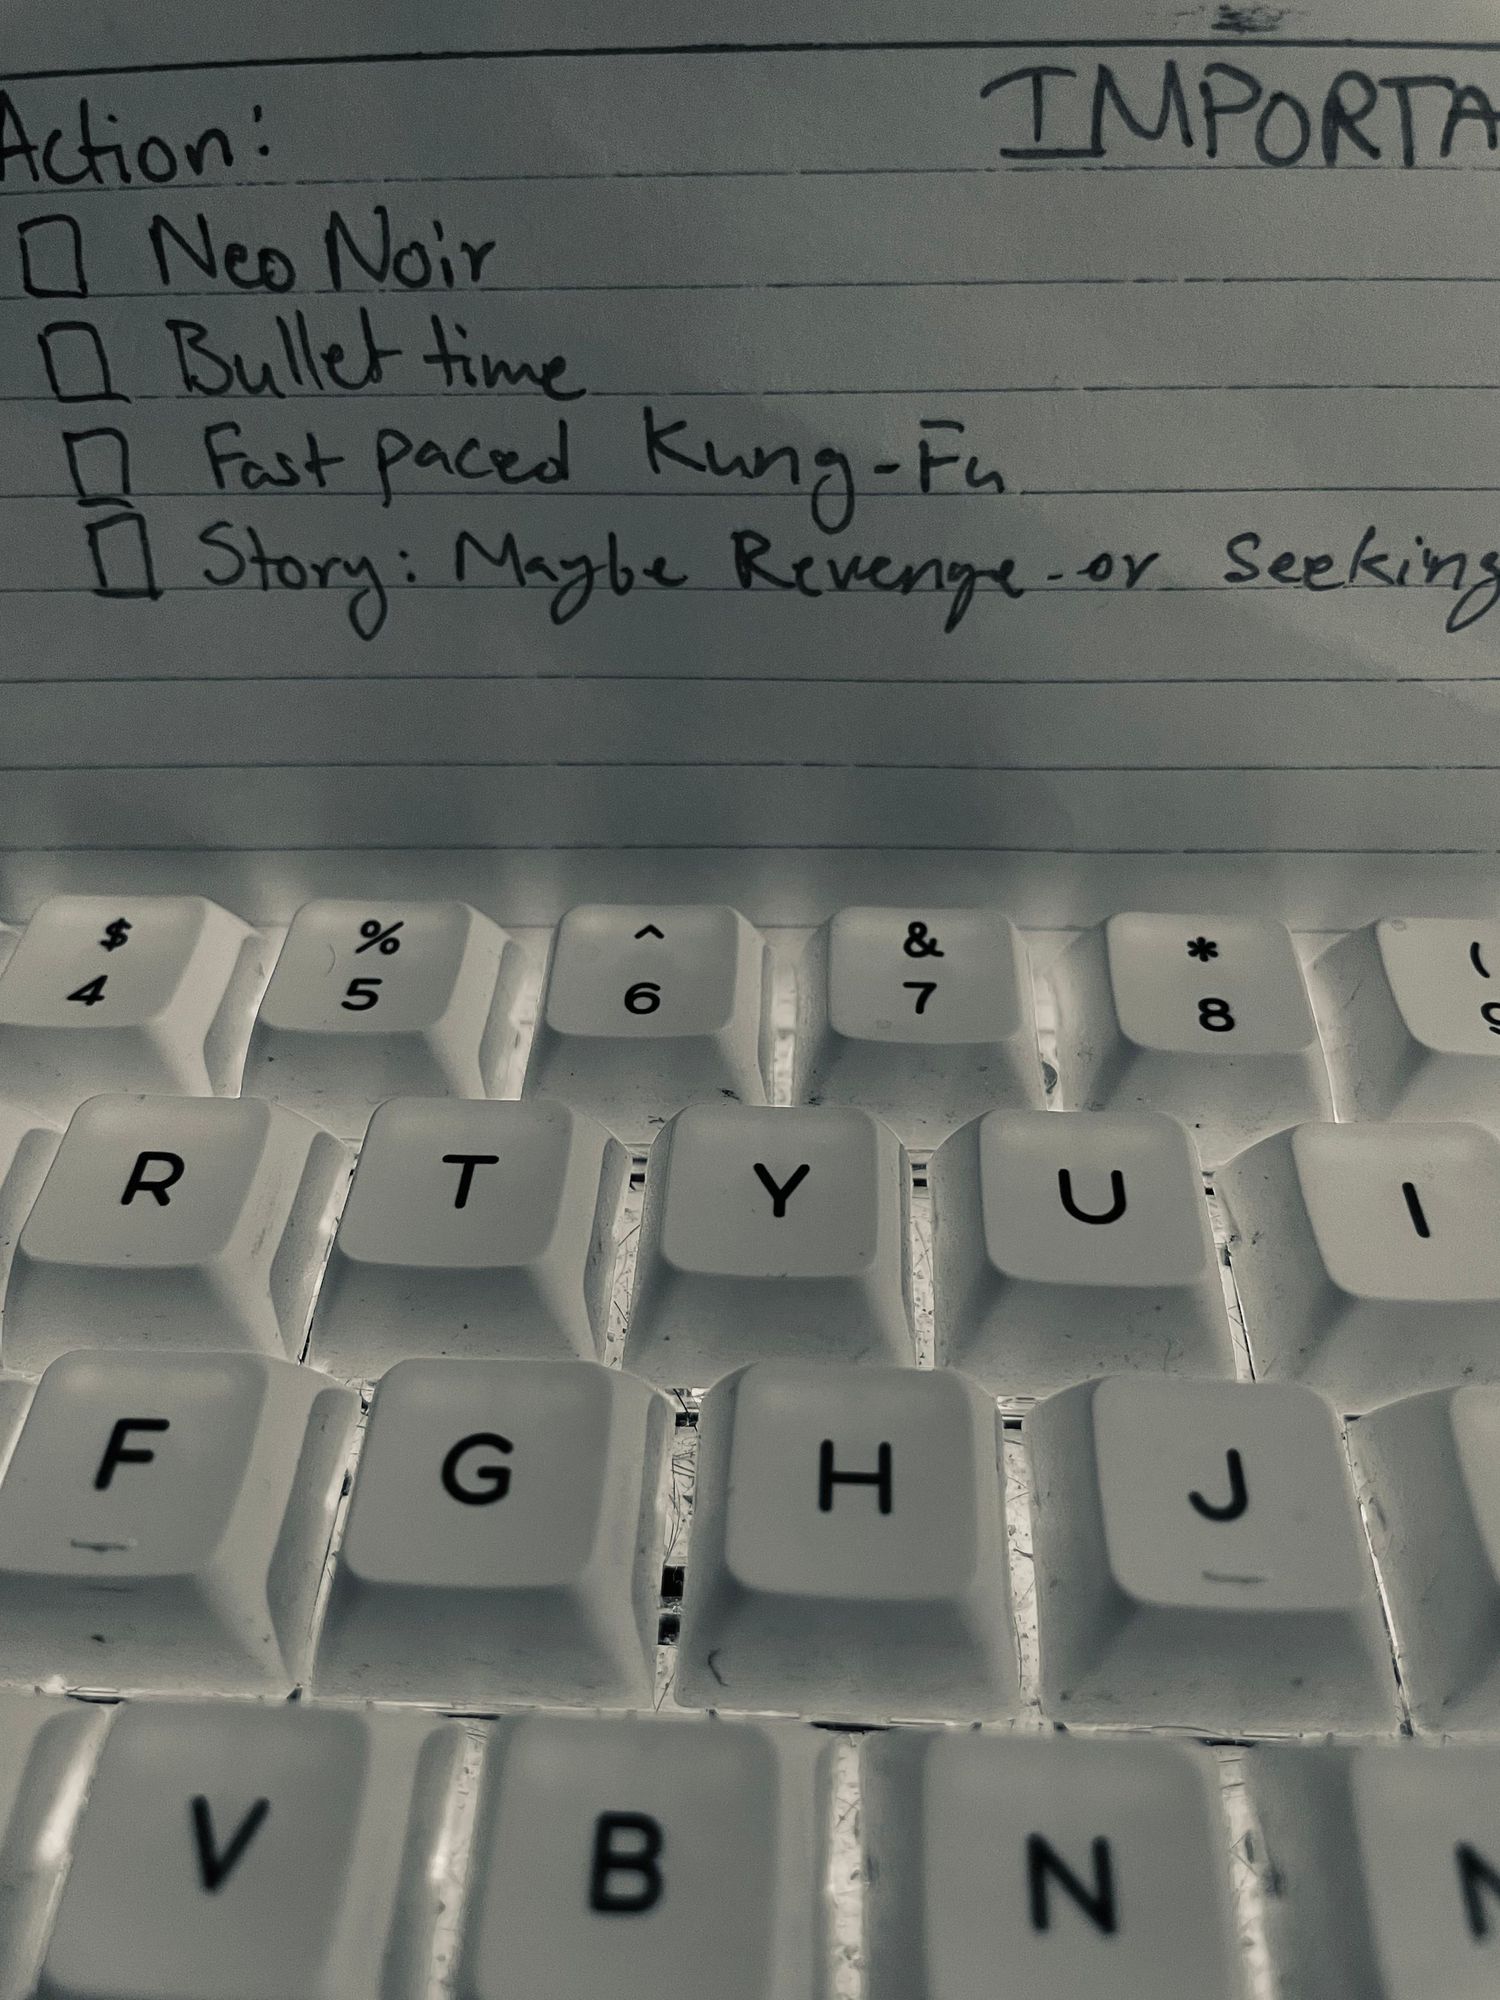 Action: IMPORTA
Neo Noir
Bullet time
Fast paced Kung-Fu
Story: Maybe Revenge or Seeking
$ % ^ & * (
4 5 6 7 8 9
R T Y U I
F G H J
V B N